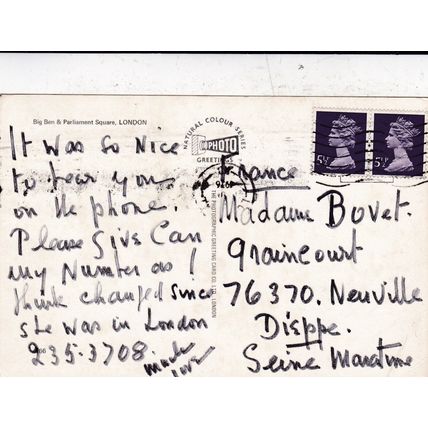 Big Ben & Parliament Square, LONDON
It was so Nice
to hear you
on the phone.
Please Give Can
my Number as I
think changed since
she was in London
235-3708.
much
love
NATURAL COLOUR SERIES
PHOTO
GREETING
THE PHOTOGRAPHIC GREETING CARD CO. LTD., LONDON
5½
5½
France
Madame Bovet.
Graincourt
76370. Neuville
Dieppe.
Seine Maratime